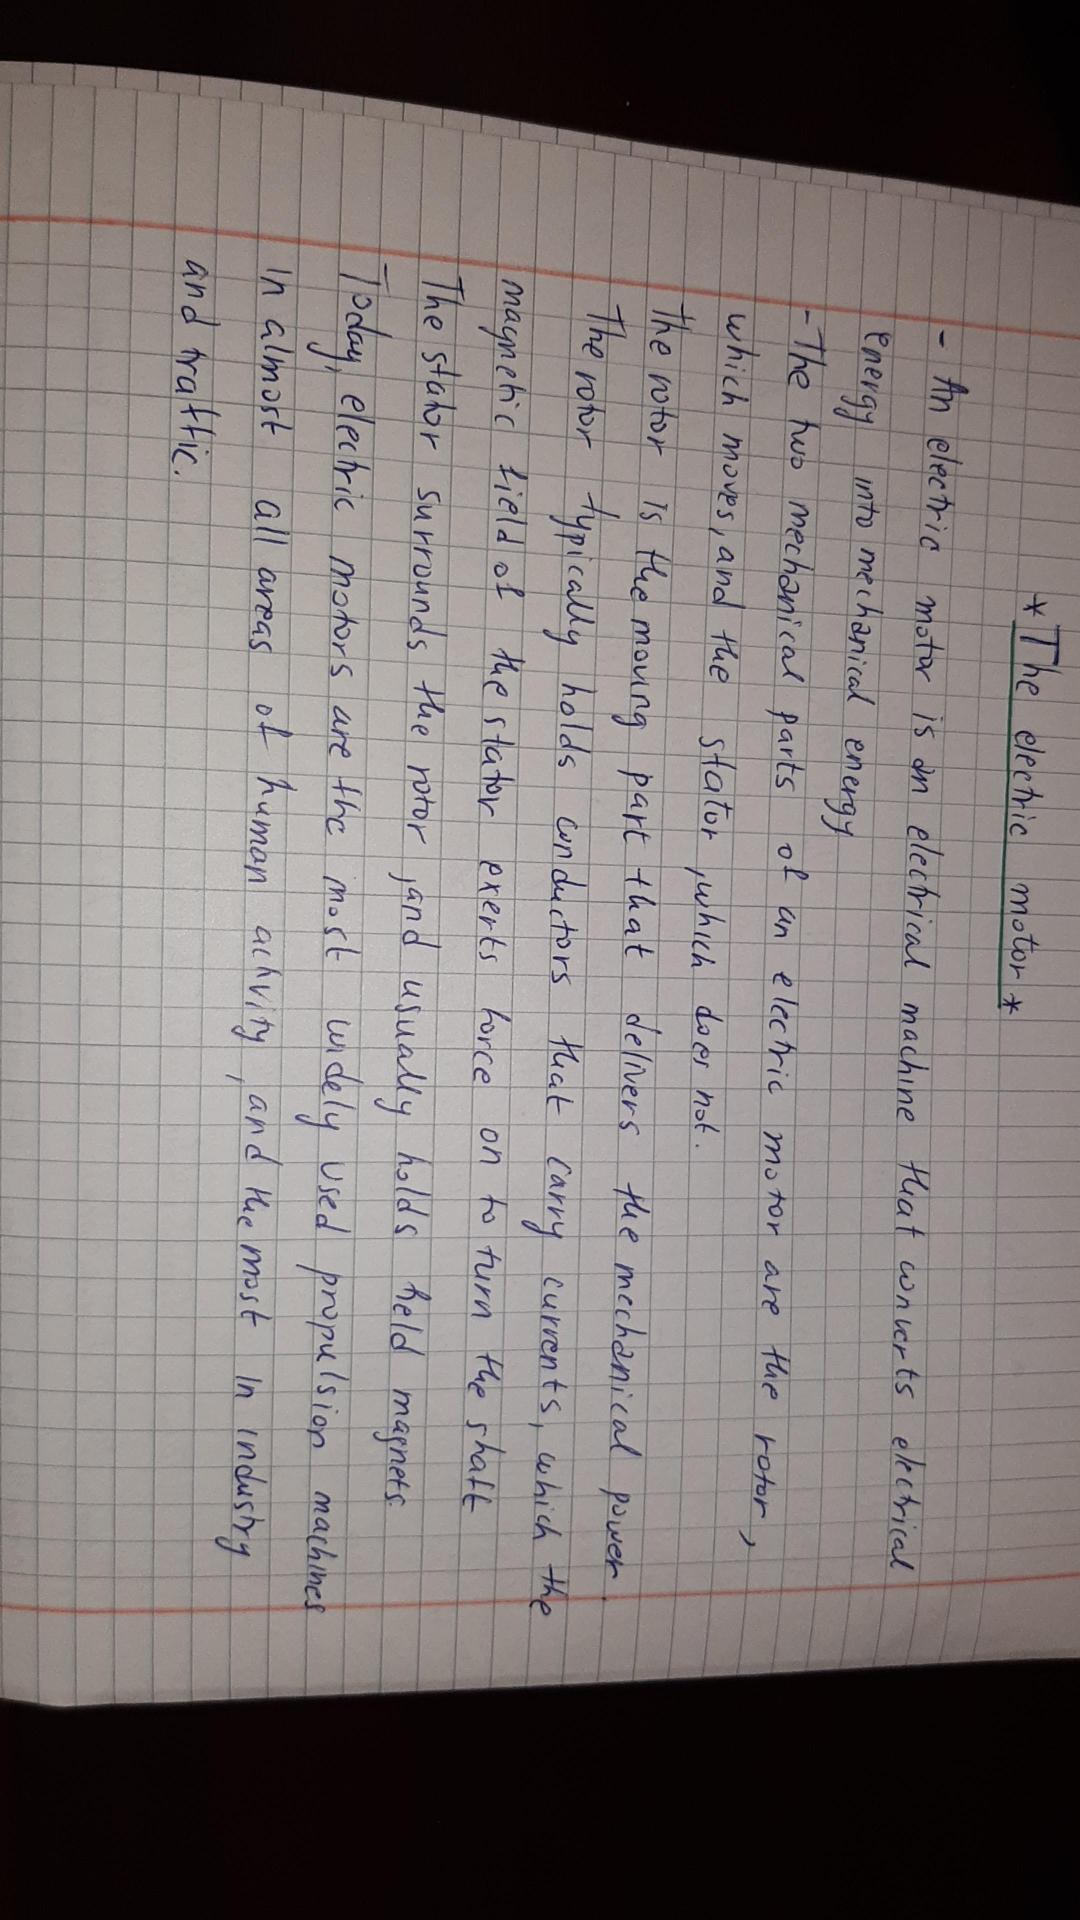 * The electric motor *
- An electric motor is an electrical machine that converts electrical
energy into mechanical energy
- The two mechanical parts of an electric motor are the rotor,
which moves, and the stator, which does not.
The rotor is the moving part that delivers the mechanical power.
The rotor typically holds conductors that carry currents, which the
magnetic field of the stator exerts force on to turn the shaft
The stator surrounds the rotor, and usually holds field magnets.
Today, electric motors are the most widely used propulsion machines
in almost all areas of human activity, and the most in industry
and traffic.